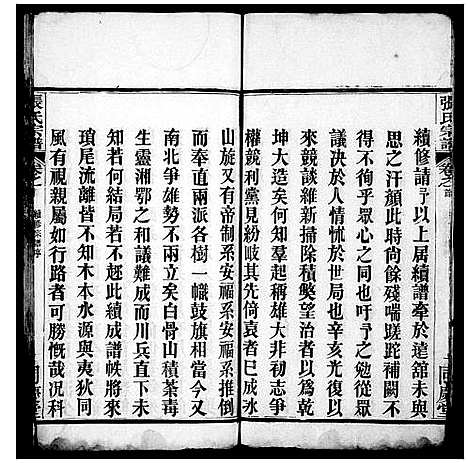 張氏宗譜
卷之首
續修請予以上屆續譜牽於遠舘未與
思之汗顏此時尚餘殘喘蹉跎補闕不
得不徇乎眾心之同也吁予之勉從眾
議決於人情怵於世局也辛亥光復以
來競談維新掃除積弊望治者以爲乾
坤大造矣何知羣起稱雄大非初志爭
權競利黨見紛岐其先倚袁者已成冰
山旋又有帝制系安福系安福系推倒
今奉而直兩派各樹一幟鼓旗相當又
南北爭雄勢不兩立矣白骨山積荼毒
生靈湘鄂之和議難成而川兵直下未
知若何結局若不趂此續成譜帙將來
瑣尾流離皆不知木本水源與夷狄同
風有視親屬如行路者可勝慨哉况科
張氏宗譜
卷之首
續修宗譜序